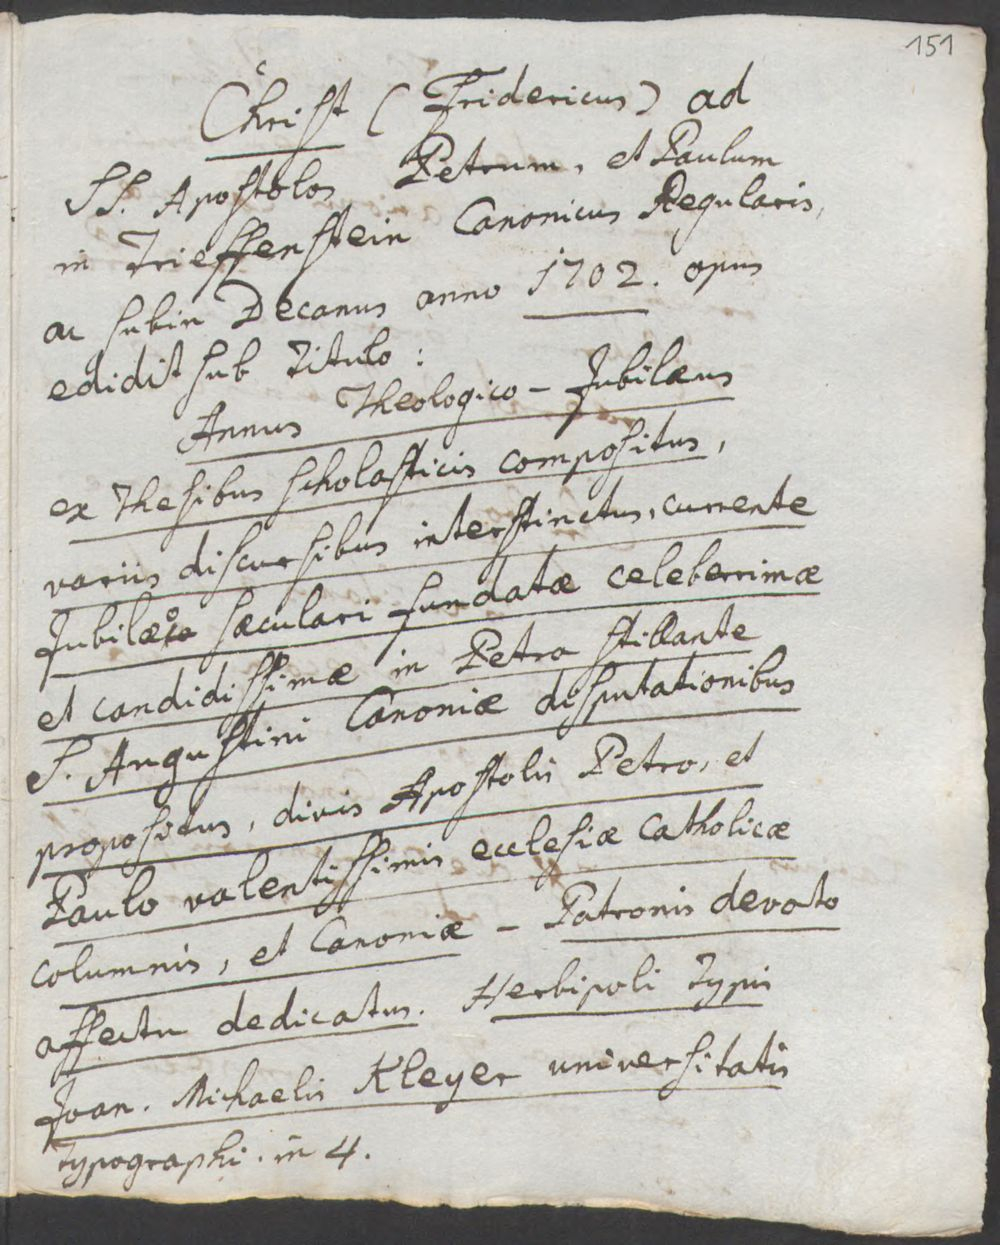 151
Christ (Fridericus) ad
SS. Apostolos Petrum, et Paulum
in Trieffenstein Canonicus Regularis,
ac subin Decanus anno 1702. opus
edidit sub Titulo:
Annus Theologico-Jubilæus
ex Thesibus scholasticis compositus,
variis discursibus interstinctus, currente
Jubilæo sæculari fundatæ celeberrimæ
et candidissimæ in Petra stillante
S. Augustini Canoniæ disputationibus
propositus, divis Apostolis Petro, et
Paulo valentissimis ecclesiæ Catholicæ
columnis, et Canoniæ - Patronis devoto
affectu dedicatus. Herbipoli Typis
Joan. Michaelis Kleyer universitatis
Typographi. in 4.